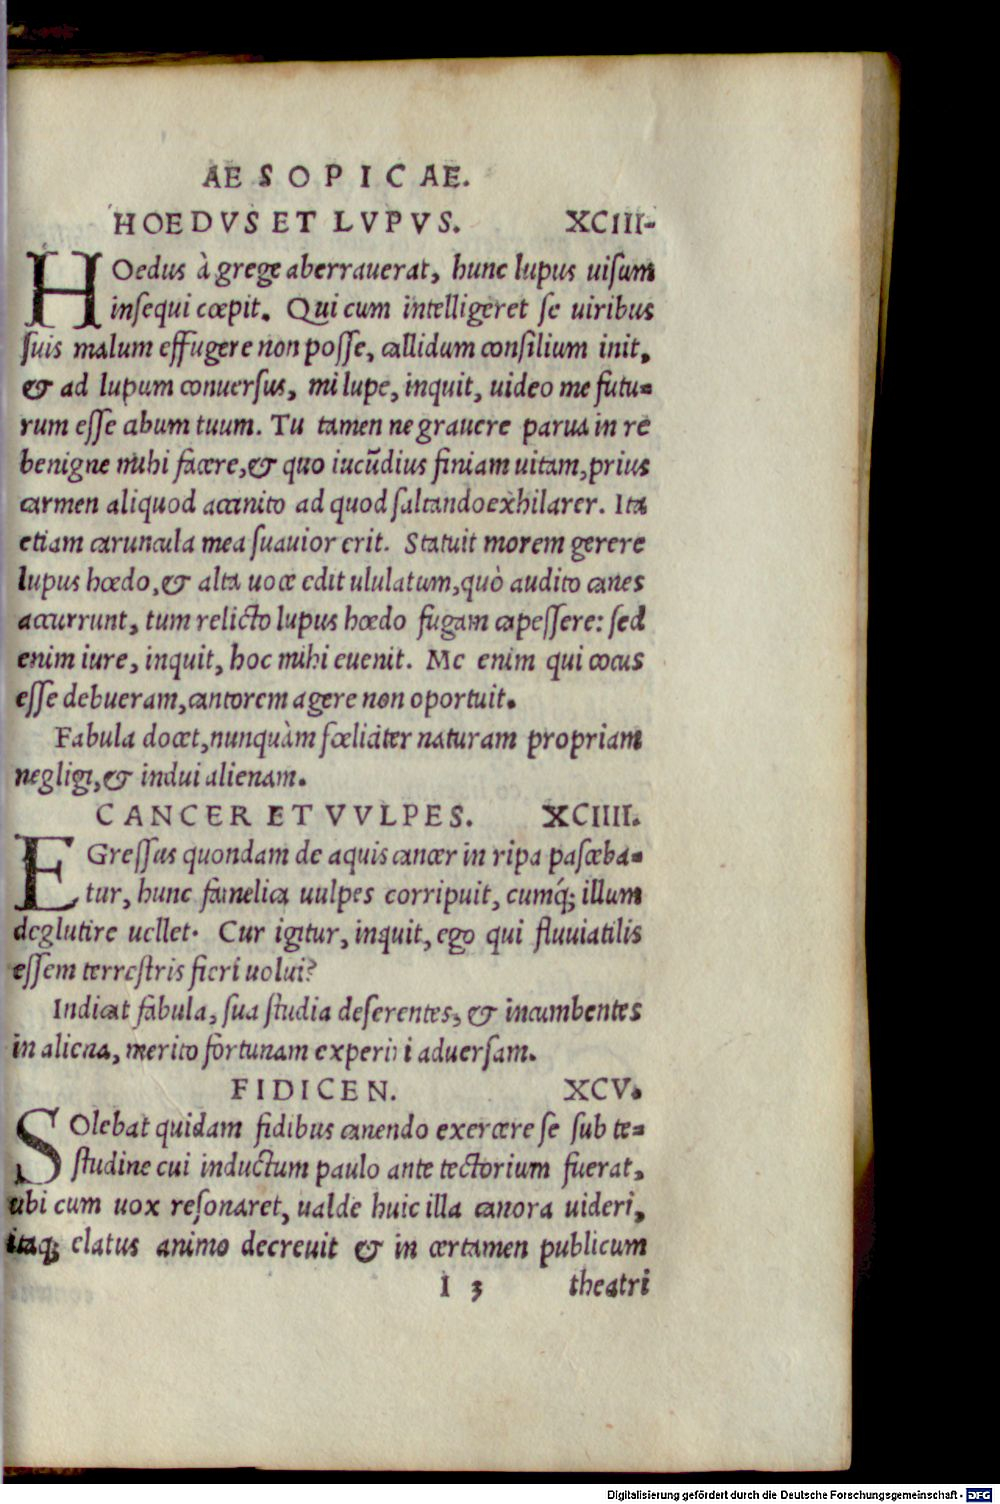 AESOPICAE.
HOEDVS ET LVPVS. XCIII.
HOedus à grege aberrauerat, hunc lupus uisum
insequi cœpit. Qui cum intelligeret se uiribus
suis malum effugere non posse, callidum consilium init,
& ad lupum conuersus, mi lupe, inquit, uideo me futu=
rum esse abum tuum. Tu tamen ne grauere parua in re
benigne mihi facere, & quo iucũdius finiam uitam, prius
carmen aliquod accinito ad quod saltando exhilarer. Ita
etiam caruncula mea suauior erit. Statuit morem gerere
lupus hœdo, & alta uoce edit ululatum, quò audito canes
accurrunt, tum relicto lupus hœdo fugam capessere: sed
enim iure, inquit, hoc mihi euenit. Me enim qui cocus
esse debueram, cantorem agere non oportuit.
Fabula docet, nunquàm fœliciter naturam propriam
negligi, & indui alienam.
CANCER ET VVLPES. XCIIII.
EGressus quondam de aquis cancer in ripa pasceba=
tur, hunc famelica uulpes corripuit, cumq́; illum
deglutire uellet. Cur igitur, inquit, ego qui fluuiatilis
essem terrestris fieri uolui?
Indicat fabula, sua studia deserentes, & incumbentes
in aliena, merito fortunam experiri aduersam.
FIDICEN. XCV.
SOlebat quidam fidibus canendo exercere se sub te=
studine cui inductum paulo ante tectorium fuerat,
ubi cum uox resonaret, ualde huic illa canora uideri,
itaq; elatus animo decreuit & in certamen publicum
I 3 theatri
Digitalisierung gefördert durch die Deutsche Forschungsgemeinschaft - DFG